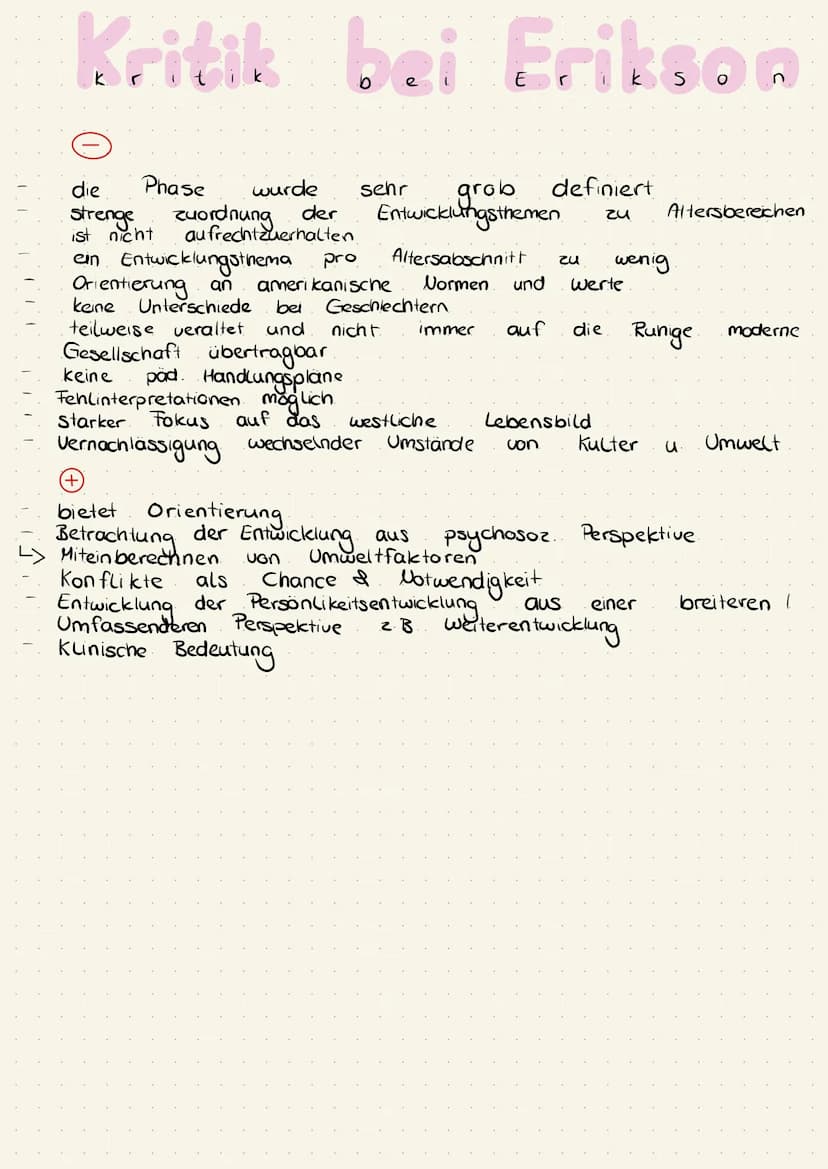 Kritik bei Erikson
-
- die Phase wurde sehr grob definiert
- strenge zuordnung der Entwicklungsthemen zu Altersbereichen
ist nicht aufrechtzuerhalten
- ein Entwicklungsthema pro Altersabschnitt zu wenig
- Orientierung an amerikanische Normen und Werte
- keine Unterschiede bei Geschlechtern
- teilweise veraltet und nicht immer auf die Runige moderne
Gesellschaft übertragbar
- keine päd. Handlungspläne
- Fehlinterpretationen möglich
- starker Fokus auf das westliche Lebensbild
- Vernachlässigung wechselnder Umstände von Kulter u. Umwelt
+
- bietet Orientierung
- Betrachtung der Entwicklung aus psychosoz. Perspektive
↳ Miteinberechnen von Umweltfaktoren
- Konflikte als Chance & Notwendigkeit
- Entwicklung der Persönlikeitsentwicklung aus einer breiteren /
Umfassenderen Perspektive z.B. Weiterentwicklung
- Klinische Bedeutung